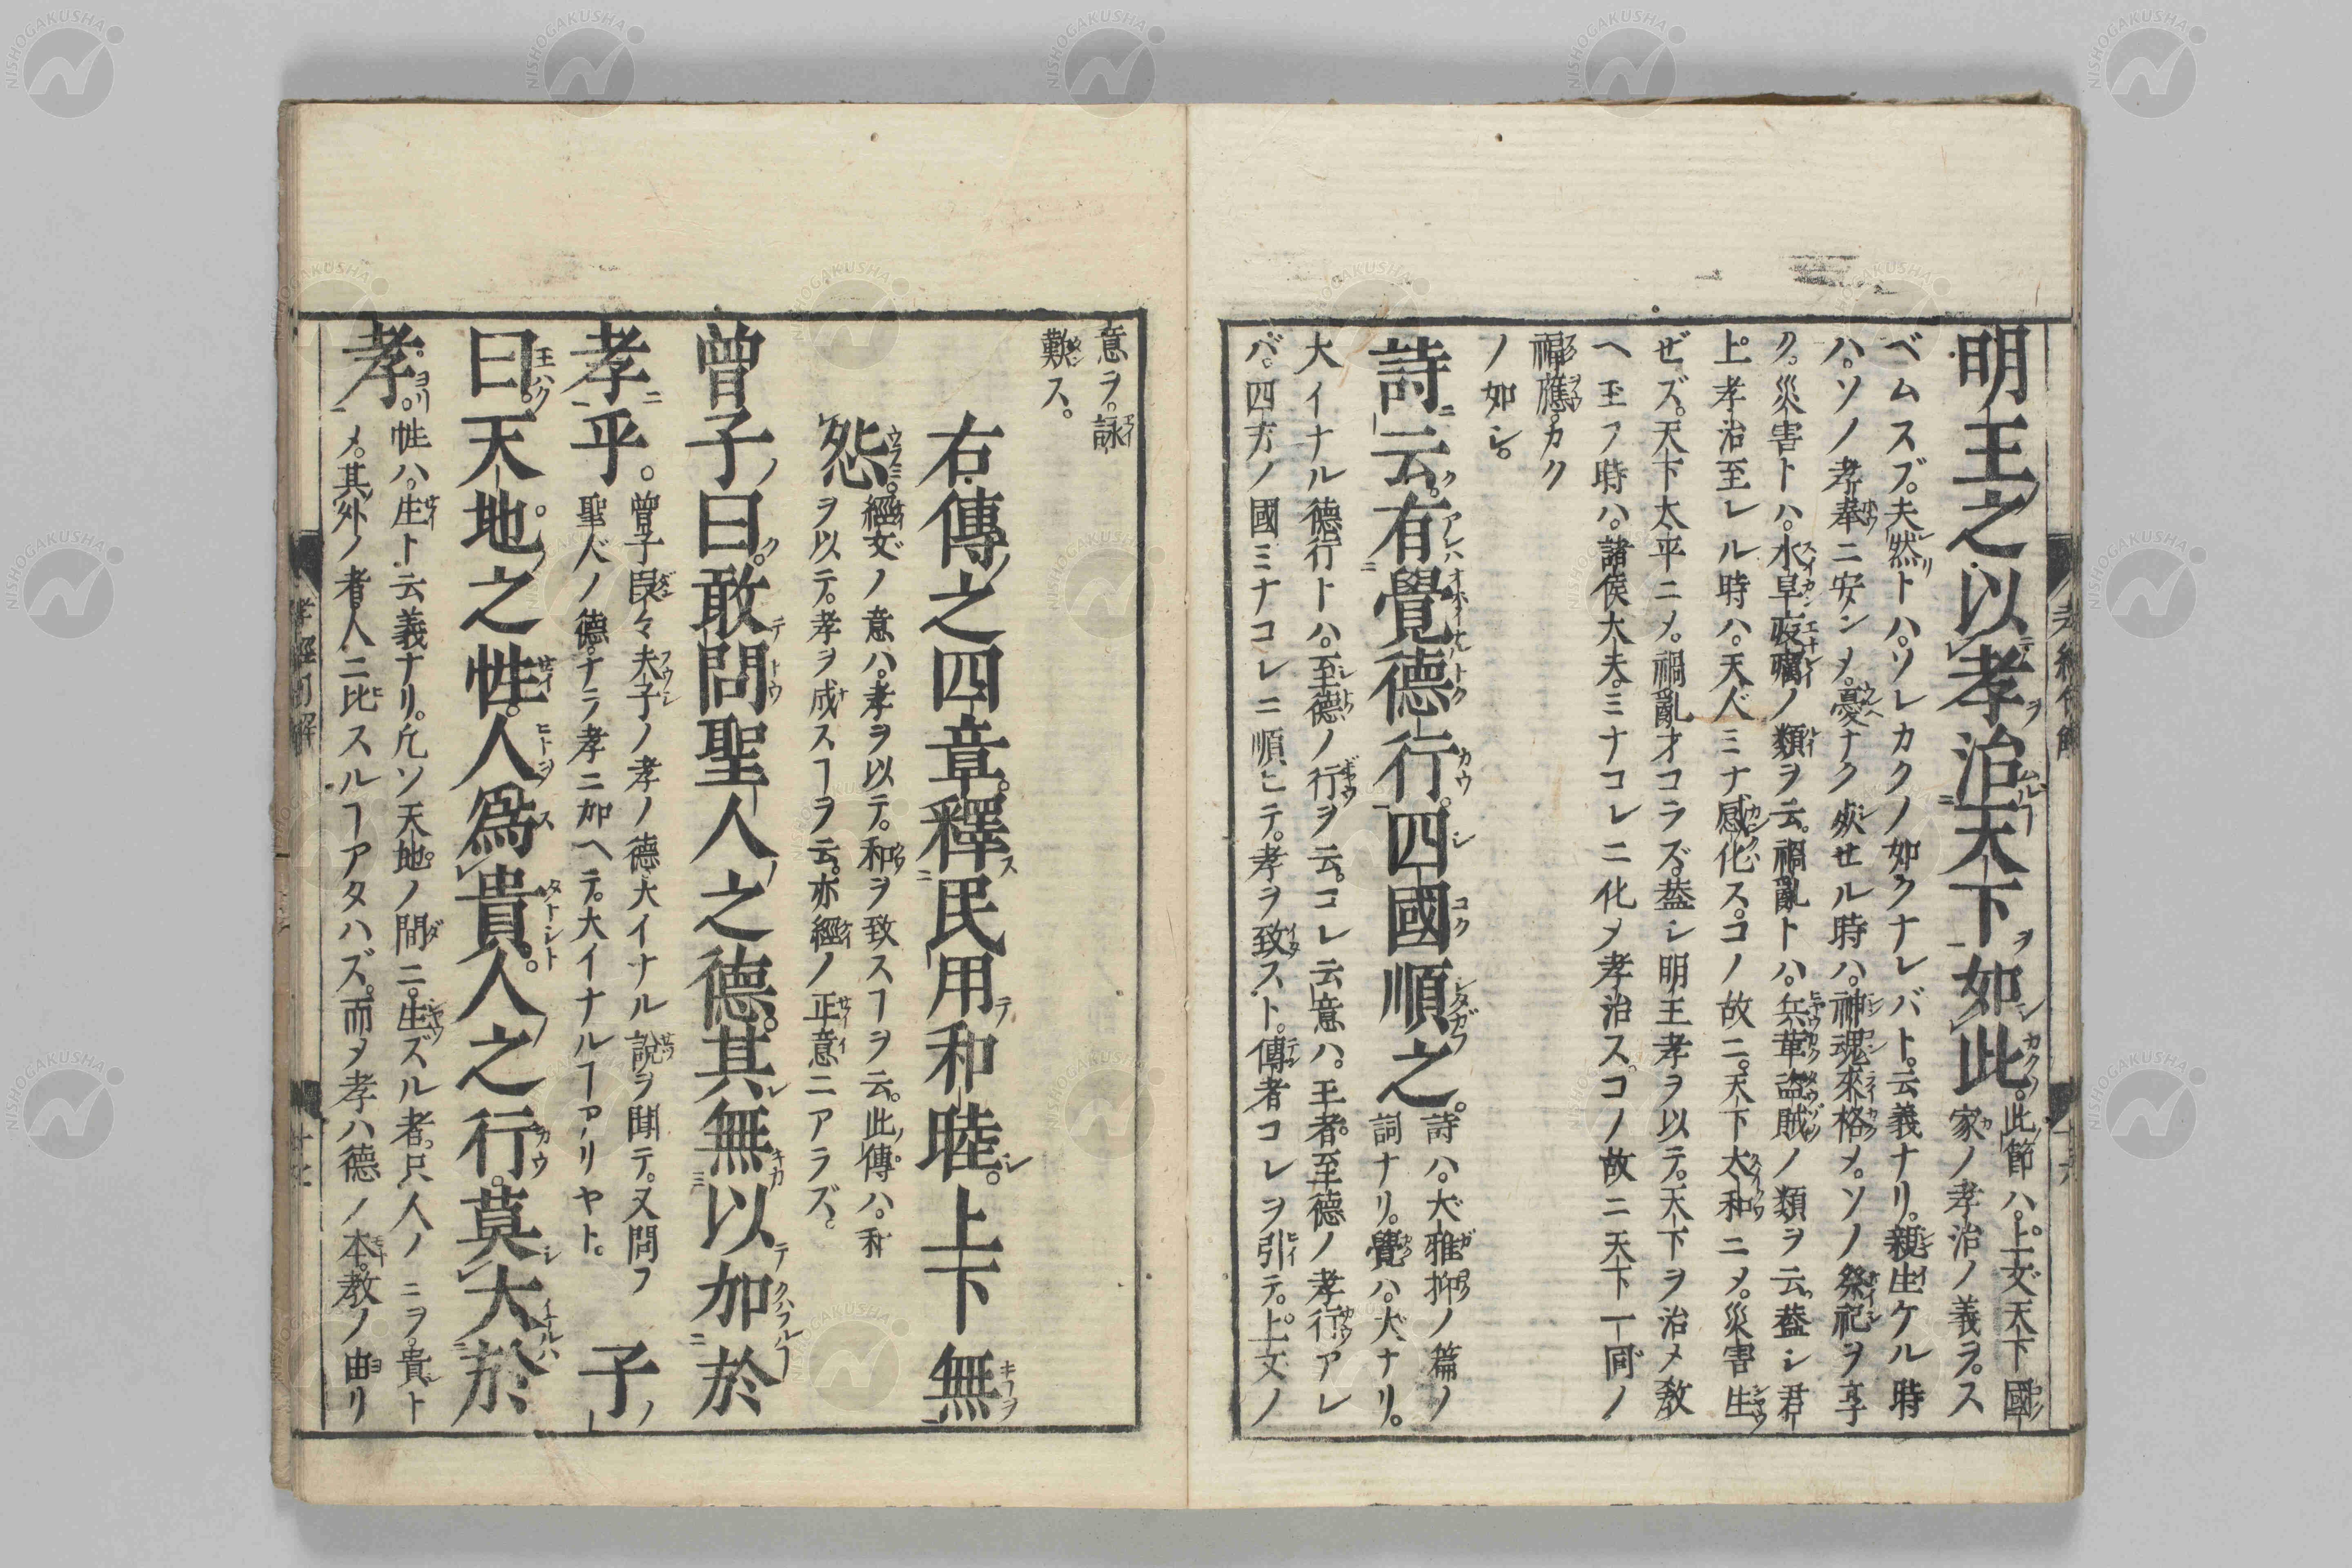 明王之以孝治天下如此。此節ハ。上文天下國
家ノ孝治ノ義ヲ。ス
ベムスブ。夫然トハ。ソレカクノ如クナレバト。云義ナリ。親生ケル時
ハ。ソノ孝奉ニ安ンメ。憂ナク炎セル時ハ。神魂來格メ。ソノ祭祀ヲ享
ク。災害トハ。水旱疫癘ノ類ヲ云。禍亂トハ。兵革盗賊ノ類ヲ云。蓋シ君
上。孝治至レル時ハ。天人ミナ感化ス。コノ故ニ。天下太和ニメ。災害生
ゼズ。天下太平ニメ。禍亂オコラズ。蓋シ明王孝ヲ以テ。天下ヲ治メ教
ヘ玉フ時ハ。諸侯大夫。ミナコレニ化メ孝治ス。コノ故ニ天下一同ノ
福應。カク
ノ如シ。
詩云。有覺德行。四國順之。詩ハ。大雅抑ノ篇ノ
詞ナリ。覺ハ。大ナリ。
大イナル德行トハ。至德ノ行ヲ云。コレ云意ハ。王者。至德ノ孝行アレ
バ。四方ノ國ミナコレニ順ヒテ。孝ヲ致スト。傳者コレヲ引テ。上文ノ
意ヲ。詠
歎ス。
右傳之四章。釋民用和睦。上下無
怨。經文ノ意ハ。孝ヲ以テ。和ヲ致スヿヲ云。此傳ハ。和
ヲ以テ。孝ヲ成スヿヲ云。亦經ノ正意ニアラズ。
曾子曰。敢問聖人之德。其無以加於
孝乎。曾子段々夫子ノ孝ノ德大イナル説ヲ聞テ。又問フ
聖人ノ德。ナラ孝ニ加ヘテ。大イナルヿアリヤト。子
曰。天地之性。人爲貴。人之行。莫大於
孝。性ハ。生ト云義ナリ。凡ソ天地ノ間ニ。生ズル者。只人ノミヲ。貴ト
メ。其外ノ者人ニ比スルヿアタハズ。而メ孝ハ德ノ本。教ノ由リ